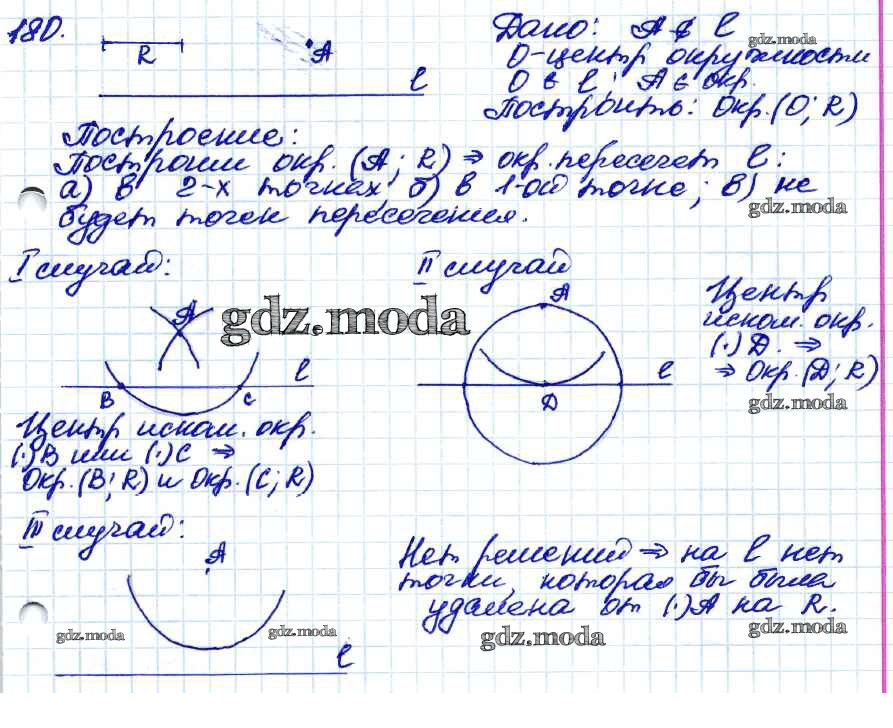 180.
R
A
l
Дано: A ∉ l
O-центр окружности
O ∈ l; A ∈ окр.
Построить: Окр.(O; R)
gdz.moda
Построение:
Построим окр. (A; R) ⇒ окр. пересечет l:
а) в 2-х точках; б) в 1-ой точке; в) не
будет точек пересечения.
gdz.moda
I случай:
A
l
B
C
gdz.moda
Центр иском. окр.
(·)B или (·)C ⇒
Окр.(B; R) и Окр.(C; R)
II случай
A
l
D
Центр
иском. окр.
(·)D. ⇒
⇒ Окр.(D; R)
gdz.moda
III случай:
A
l
gdz.moda
gdz.moda
Нет решений ⇒ на l нет
точки, которая бы была
удалена от (·)A на R.
gdz.moda
gdz.moda